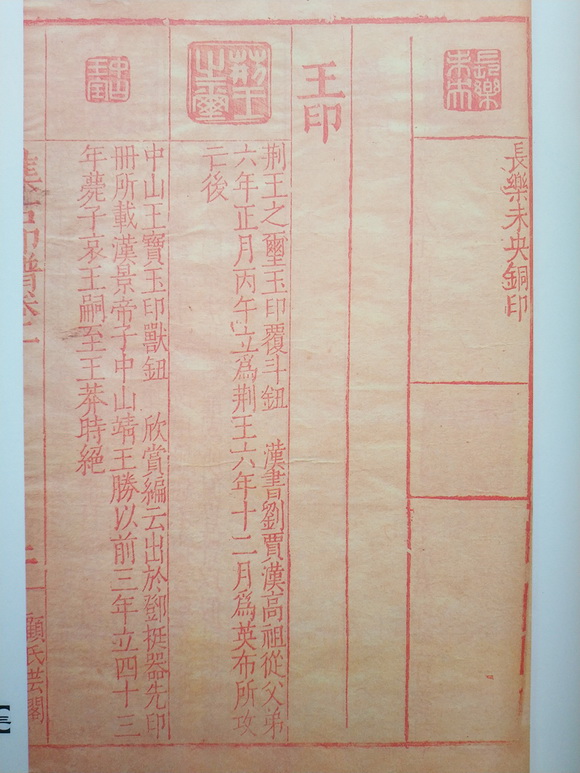 長樂未央
長樂未央銅印
王印
荊王之璽
荊王之璽玉印覆斗鈕 漢書劉賈漢高祖從父弟
六年正月丙午立為荊王六年十二月為英布所攻
亡後
中山王寶
中山王寶玉印獸鈕 欣賞編云出於鄧挺器先印
冊所載漢景帝子中山靖王勝以前三年立四十三
年薨子哀王嗣至王莽時絕
集古印譜卷二
顧氏芸閣